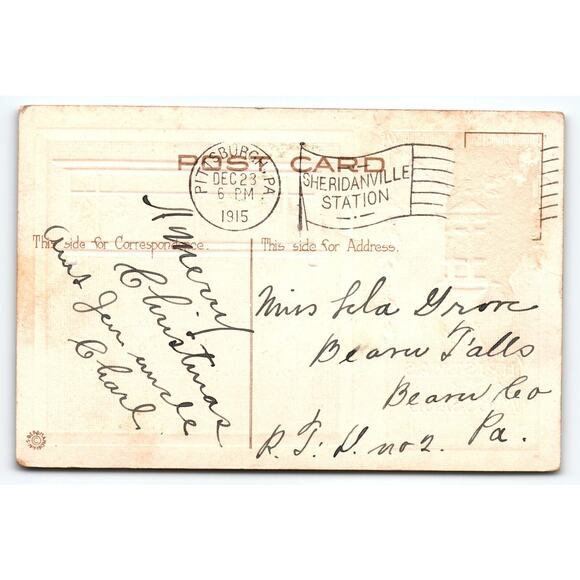 POST CARD
PITTSBURGH, PA.
DEC 23
6 PM
1915
SHERIDANVILLE
STATION
This side for Correspondence.
This side for Address.
A Merry
Christmas
Aunt Jen uncle
Charl
Miss Lela Grove
Beaver Falls
Beaver Co
R. F. D. no 2. Pa.